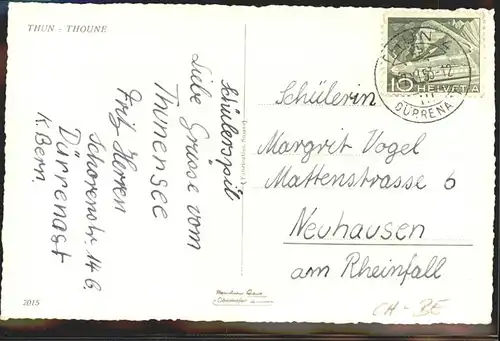 THUN - THOUNE
Schülerspil
Liebe Grüsse vom
Thunersee
Fritz Herren
Schorenstr. 14 G.
Dürrenast
K. Bern.
2015
10 HELVETIA
DÜRRENA
Schülerin
Margrit Vogel
Mattenstrasse 6
Neuhausen
am Rheinfall
CH - BE